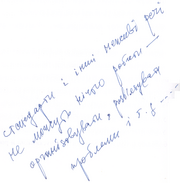 стандарти і інші можливі речі
не можуть нічого робити —
організовувати, розв'язувати
проблеми і т.д. ---